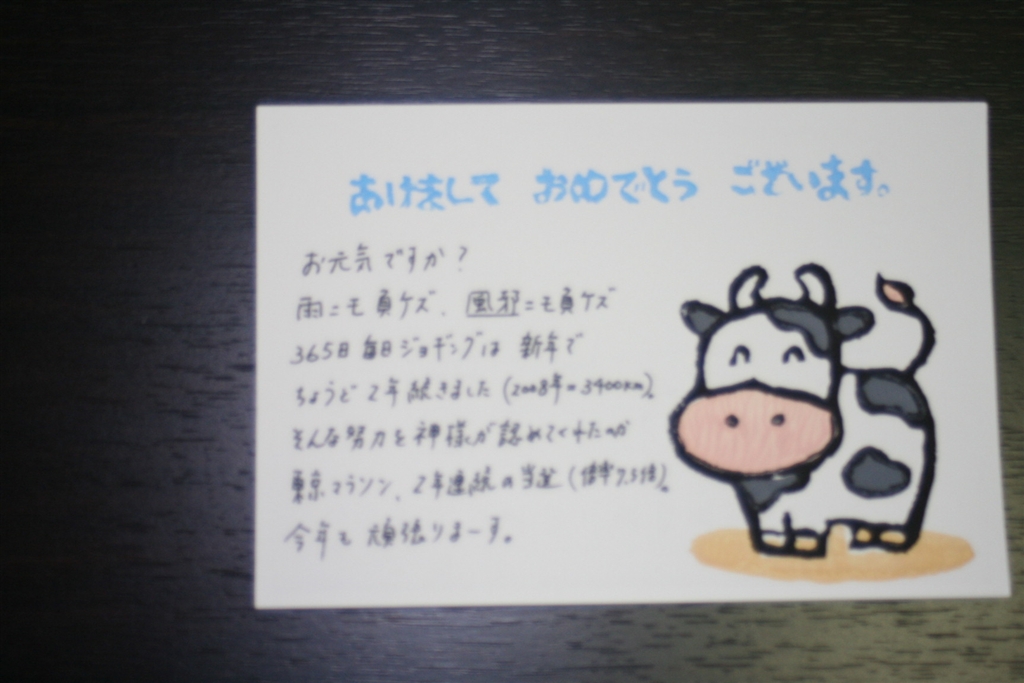 あけまして おめでとう ございます。
お元気ですか？
雨ニモ負ケズ、風邪ニモ負ケズ
365日毎日ジョギングは 新年で
ちょうど2年続きました(2008年=3400km)。
そんな努力を神様が認めてくれたのが
東京マラソン、2年連続の当選(倍率7.5倍)。
今年も 頑張りまーす。